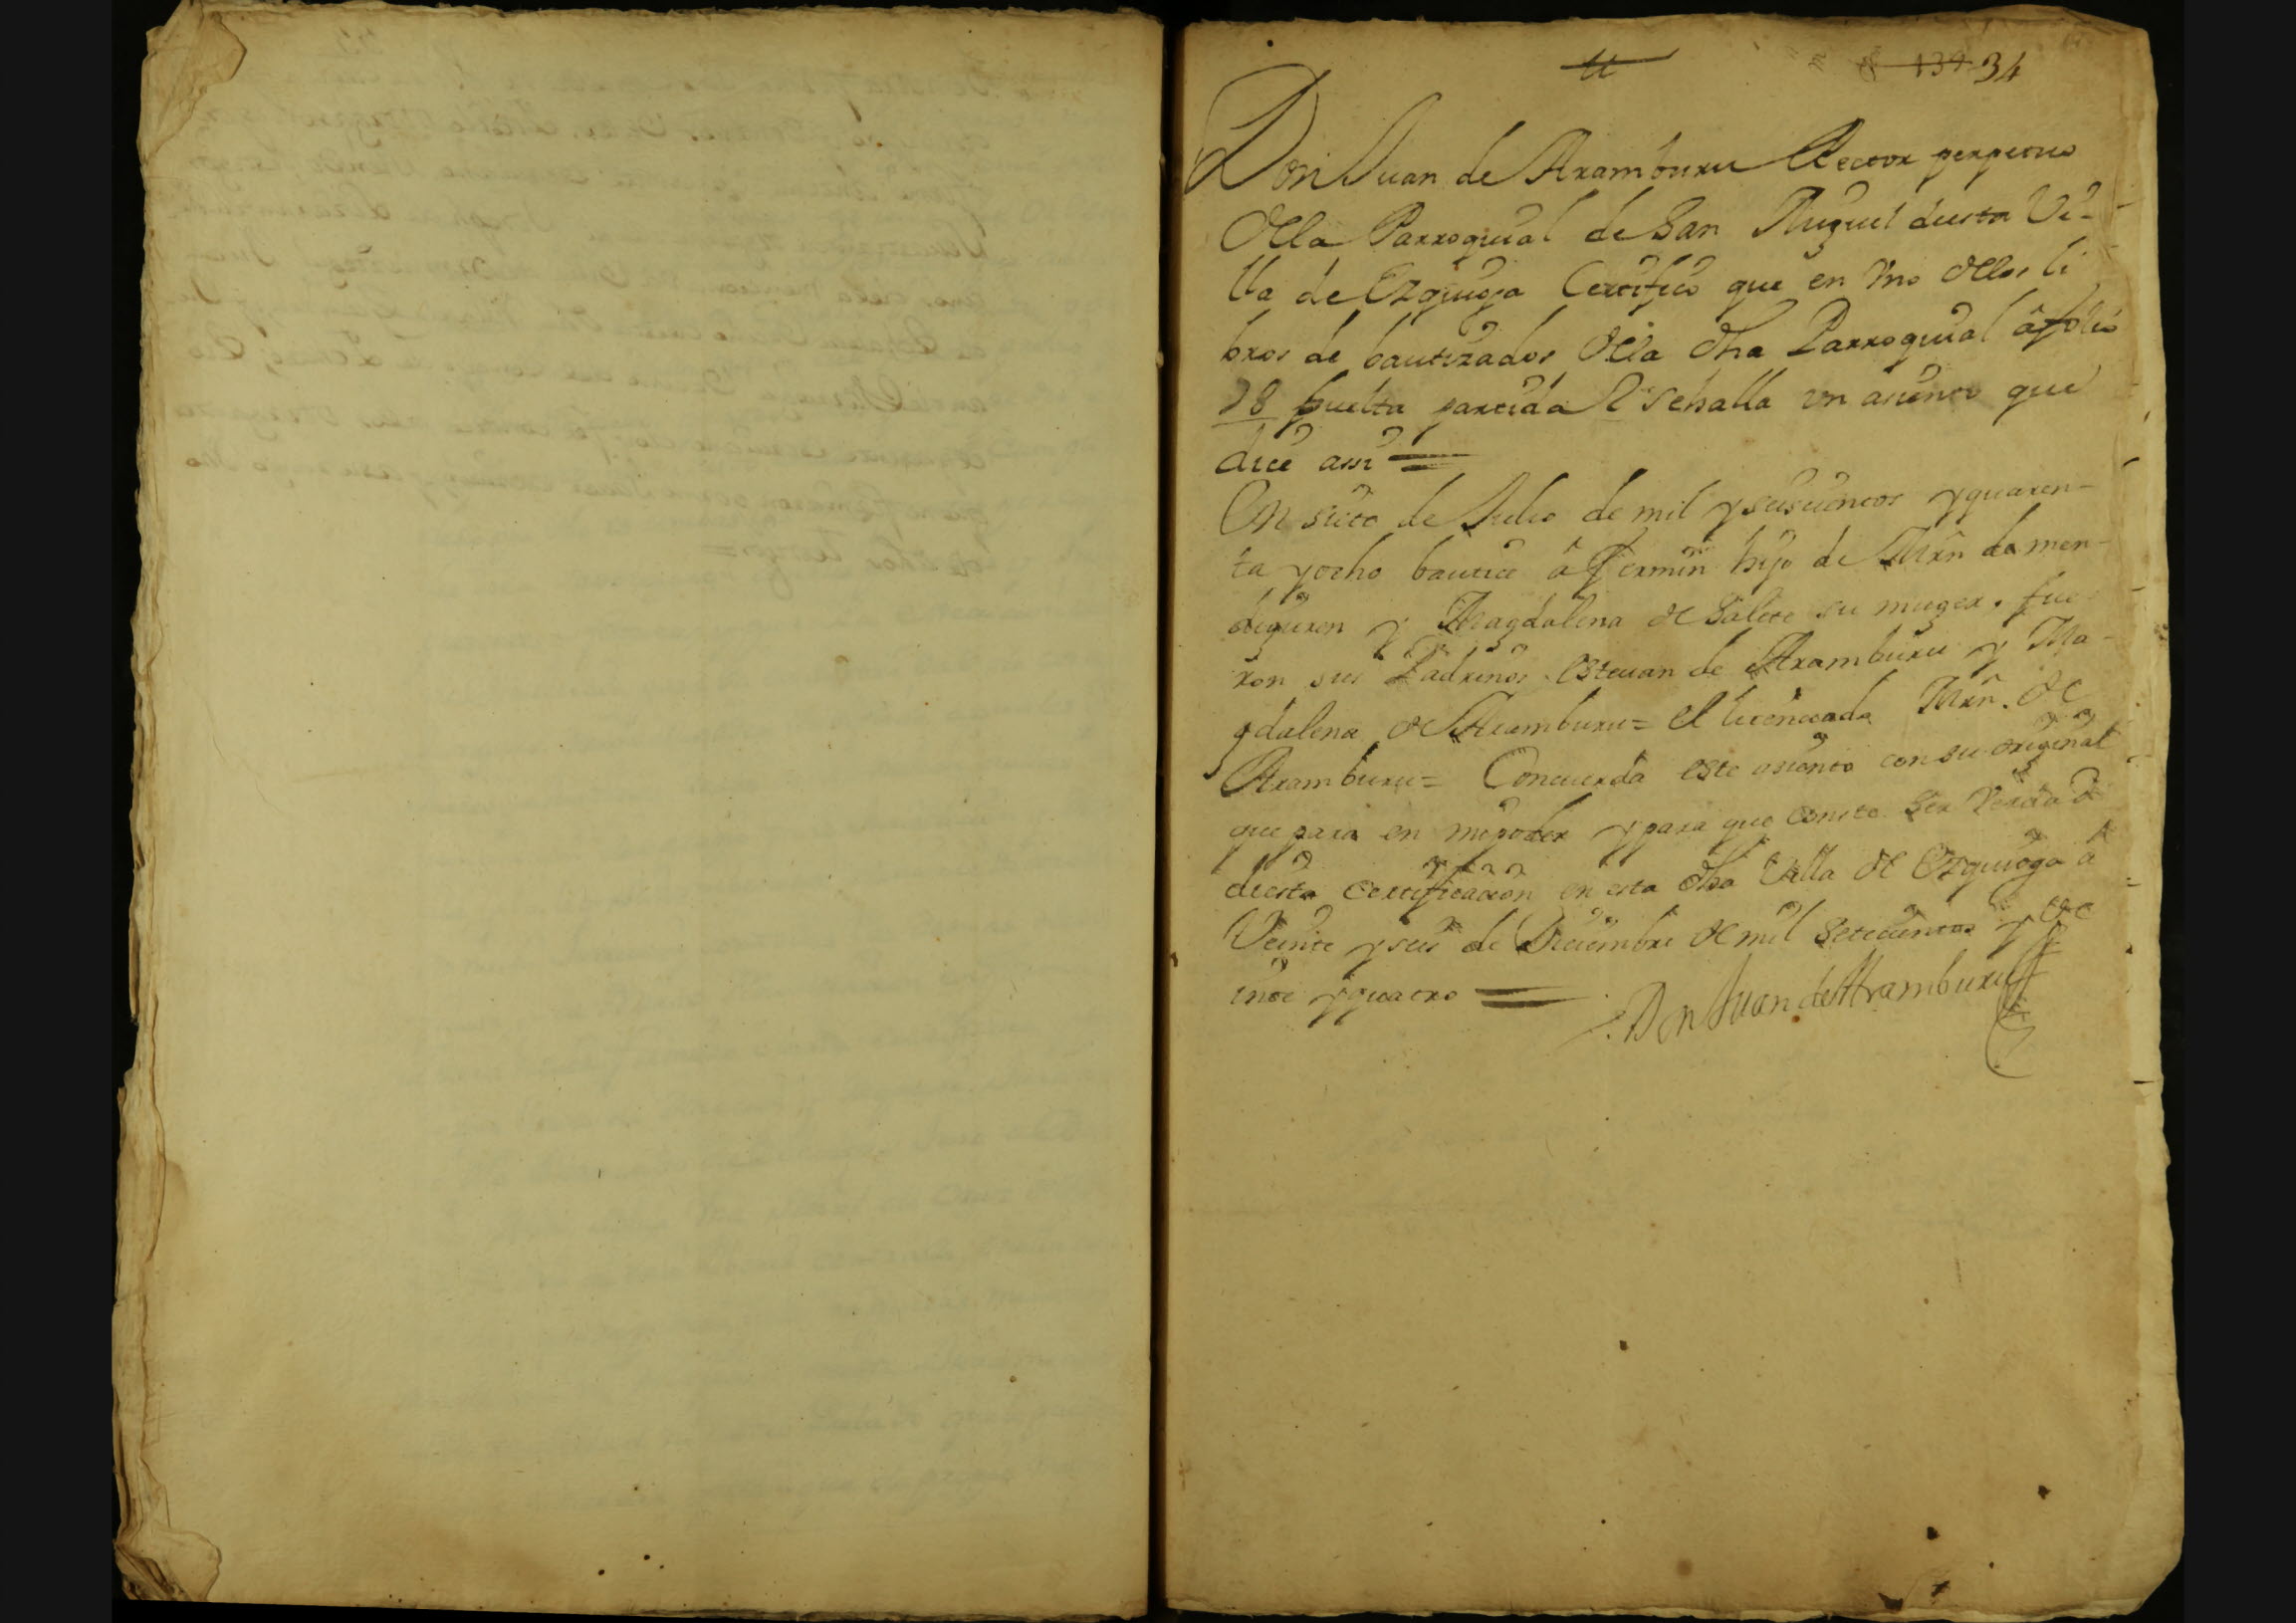 11
139 34
Don Juan de Aramburu Rector perpetuo
della Parroquial de San Miguel desta Vi-
lla de Ezquioga Certifico que en Vno dellos li
bros de bautizados della dha Parroquial â folio
28 buelta partida 2 se halla vn asiento que
dice assi =
En siete de Julio de mil y seiscientos y quaren-
ta y ocho bautice â Fermin hijo de Mrn de men-
diguren y Magdalena de Salete su muger. fue
ron sus Padrinos Estevan de Aramburu y Ma-
gdalena de Aramburu = el licenciado Mrn. de
Aramburu = Concuerda este asiento con su original
que para en mi poder y para que conste ser Verdad
di esta certificacion en esta dha Villa de Ezquioga â
Veinte y seis de Diciembre de mil setecientos y ve
inte y quatro =
Dn Juan de Aramburu